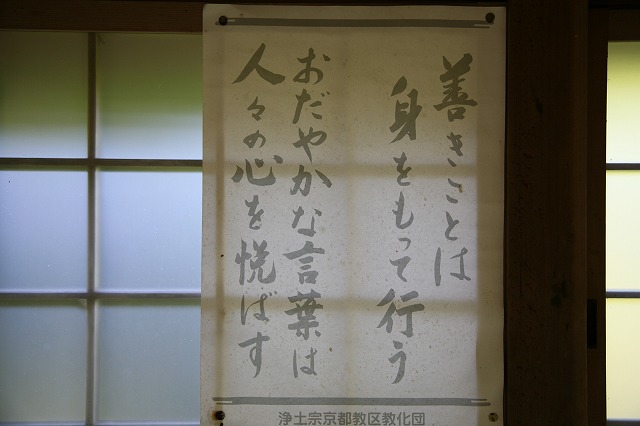 善きことは
身をもって行う
おだやかな言葉は
人々の心を悦ばす
浄土宗京都教区教化団